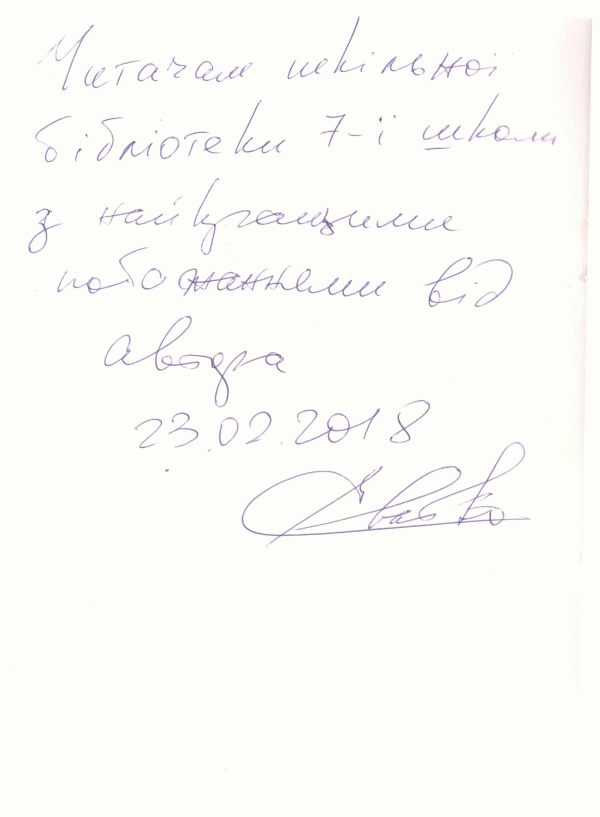 Читачам шкільної
бібліотеки 7-ї школи
з найкращими
побажаннями від
автора
23.02.2018